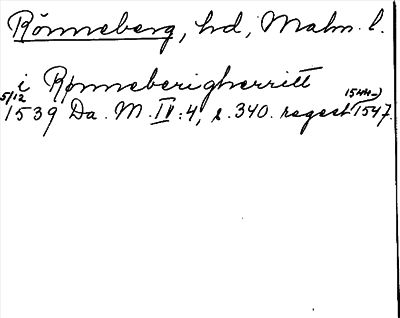 Rönneberg, hd, Malm. l.
i Rønneberigherritt
5/12 1539 Da. M. IV:4, s. 340. regest (1544-) 1547.